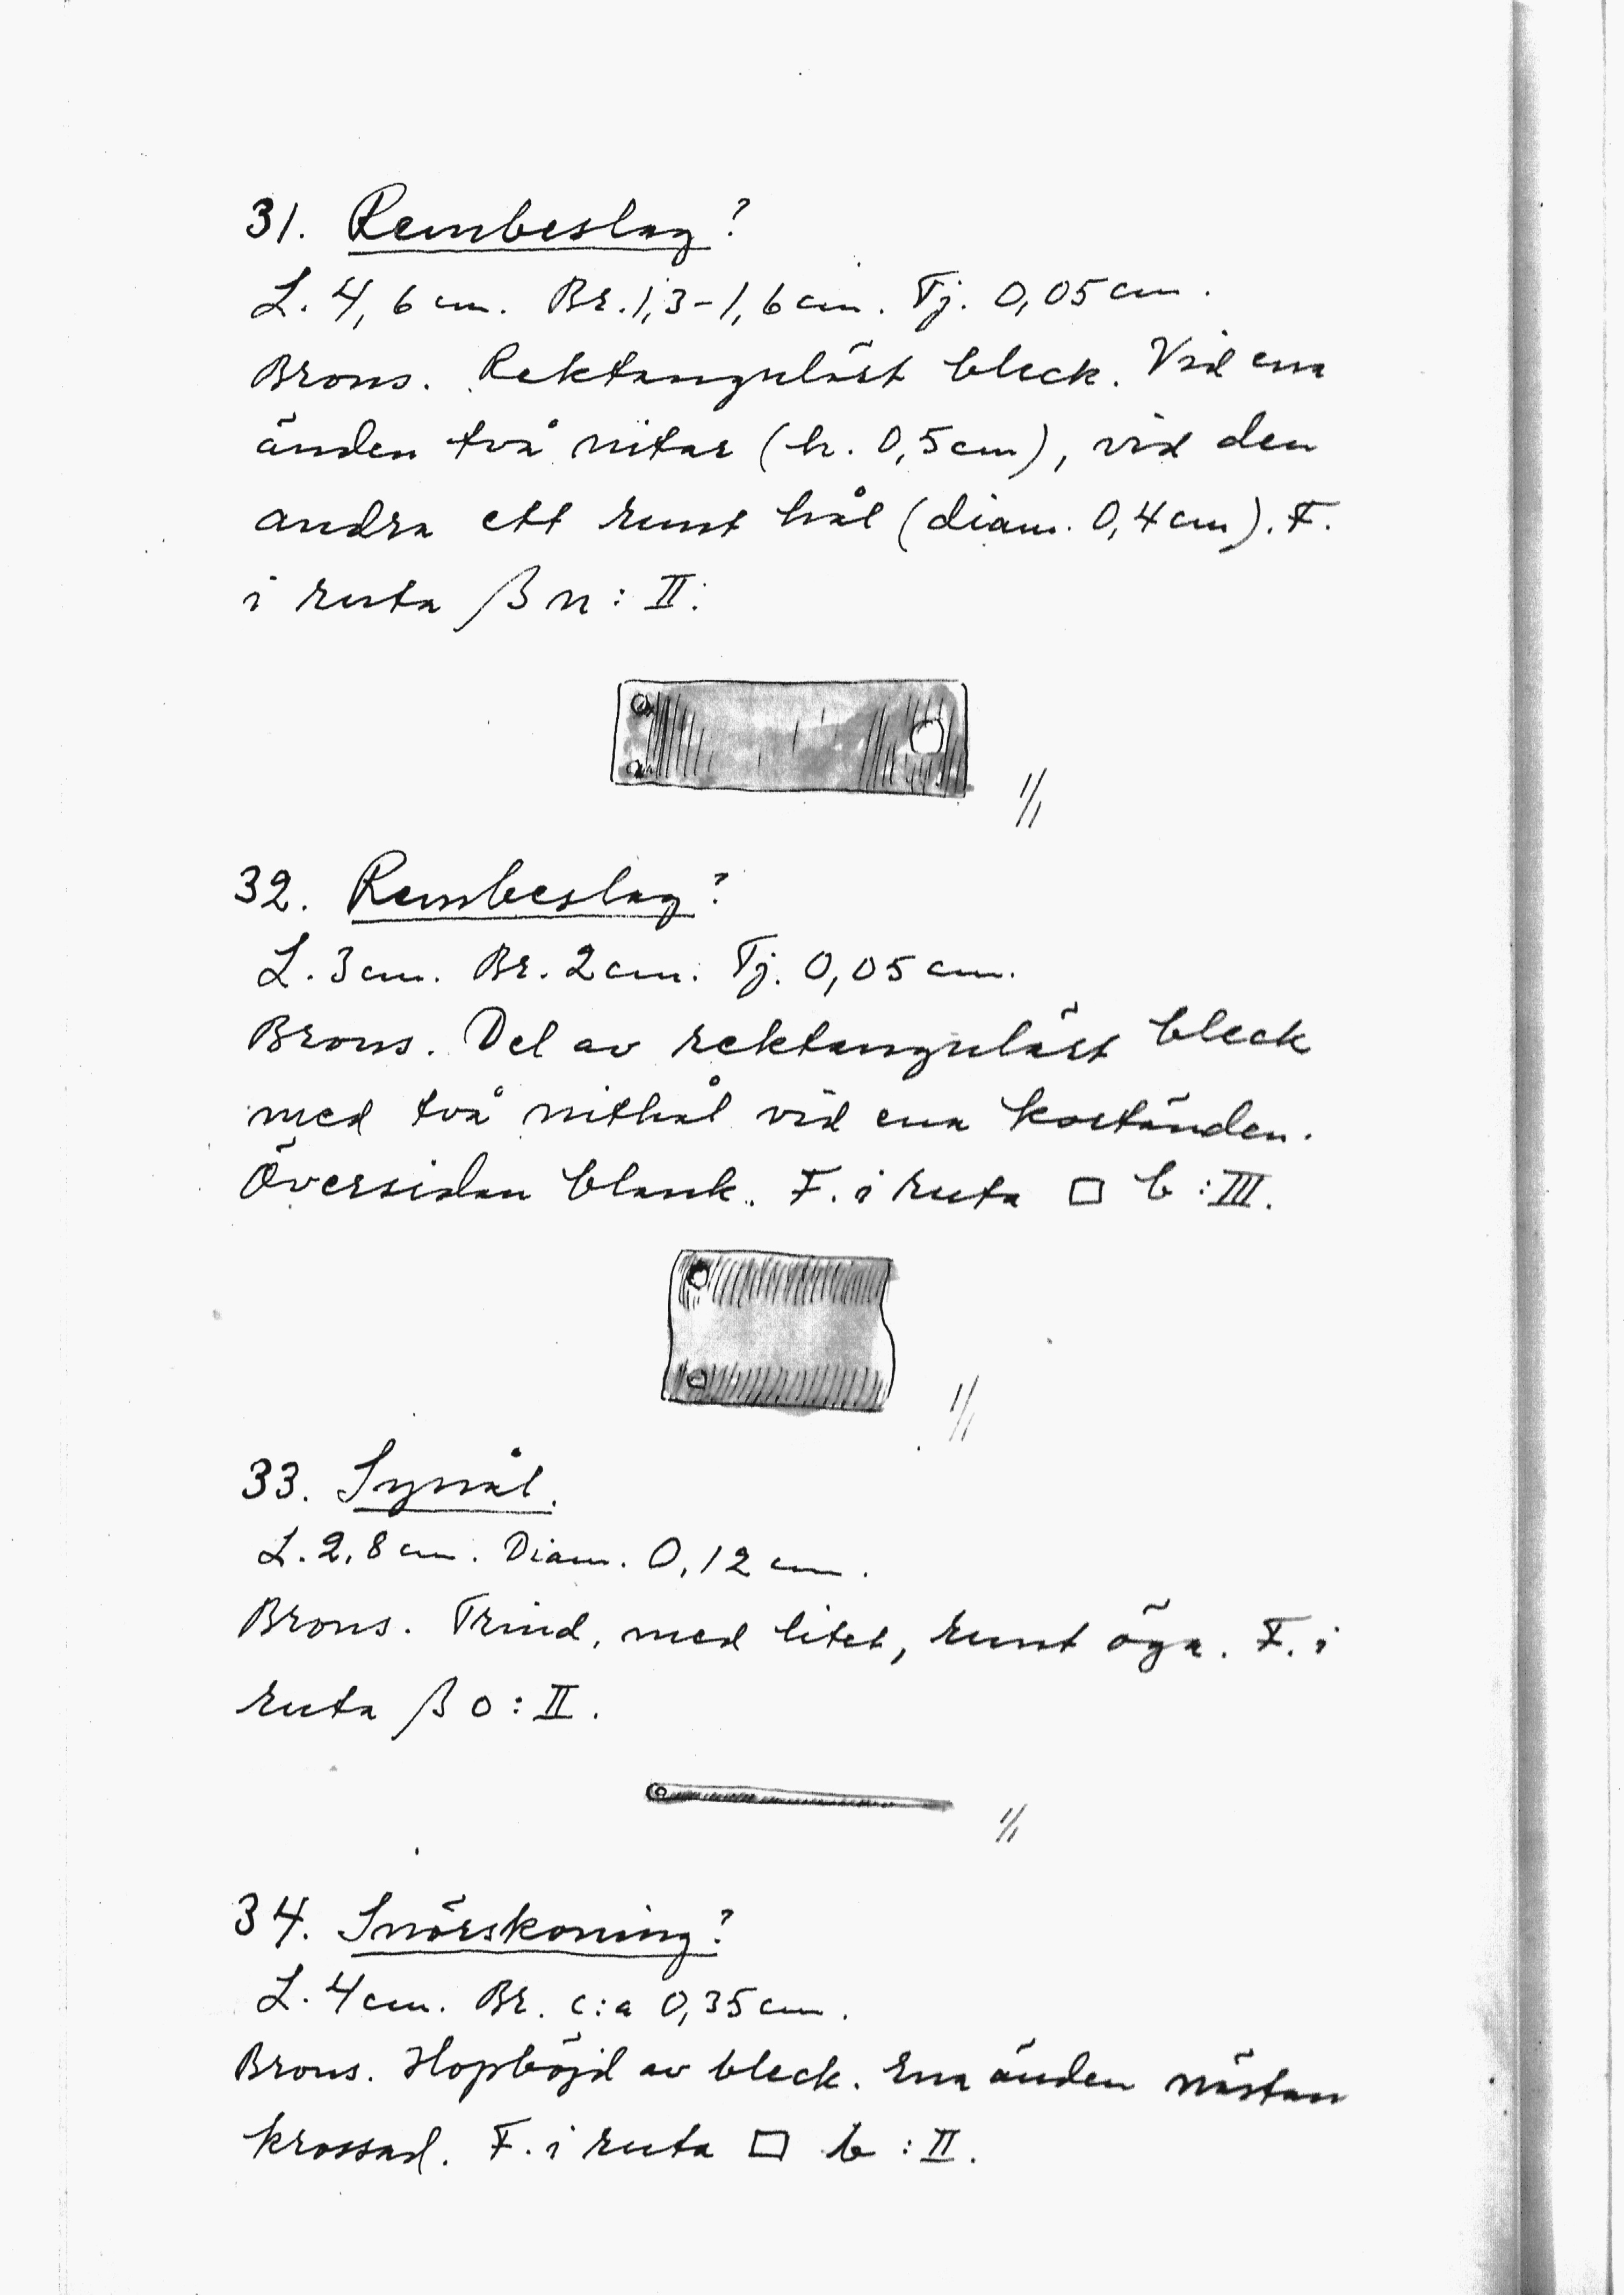 31. Rembeslag?
L. 4,6 cm. Br. 1,3-1,6 cm. Tj. 0,05 cm.
Brons. Rektangulärt bleck. Vid ena
änden två nitar (h. 0,5 cm), vid den
andra ett runt hål (diam. 0,4 cm). F.
i ruta ß n : II.
1/1
32. Rembeslag?
L. 3 cm. Br. 2 cm. Tj. 0,05 cm.
Brons. Del av rektangulärt bleck
med två nithål vid ena kortänden.
Översidan blank. F. i ruta □ b : III.
1/1
33. Synål.
L. 2,8 cm. Diam. 0,12 cm.
Brons. Trind, med litet, runt öga. F. i
ruta ß o : II.
1/1
34. Snörskoning?
L. 4 cm. Br. c:a 0,35 cm.
Brons. Hopböjd av bleck. Ena änden nästan
krossad. F. i ruta □ b : II.